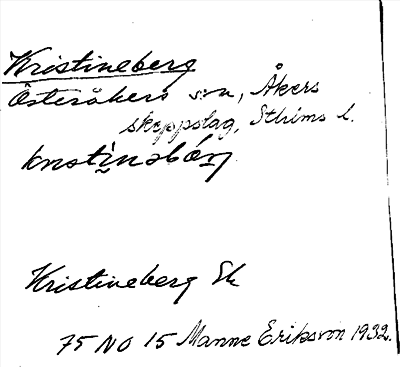 Kristineberg
Österåkers sn, Åkers
skeppslag, Sthlms l.
krɩstɩ̀nəbǽrj
Kristineberg Ek
75 NO 15 Manne Eriksson 1932.